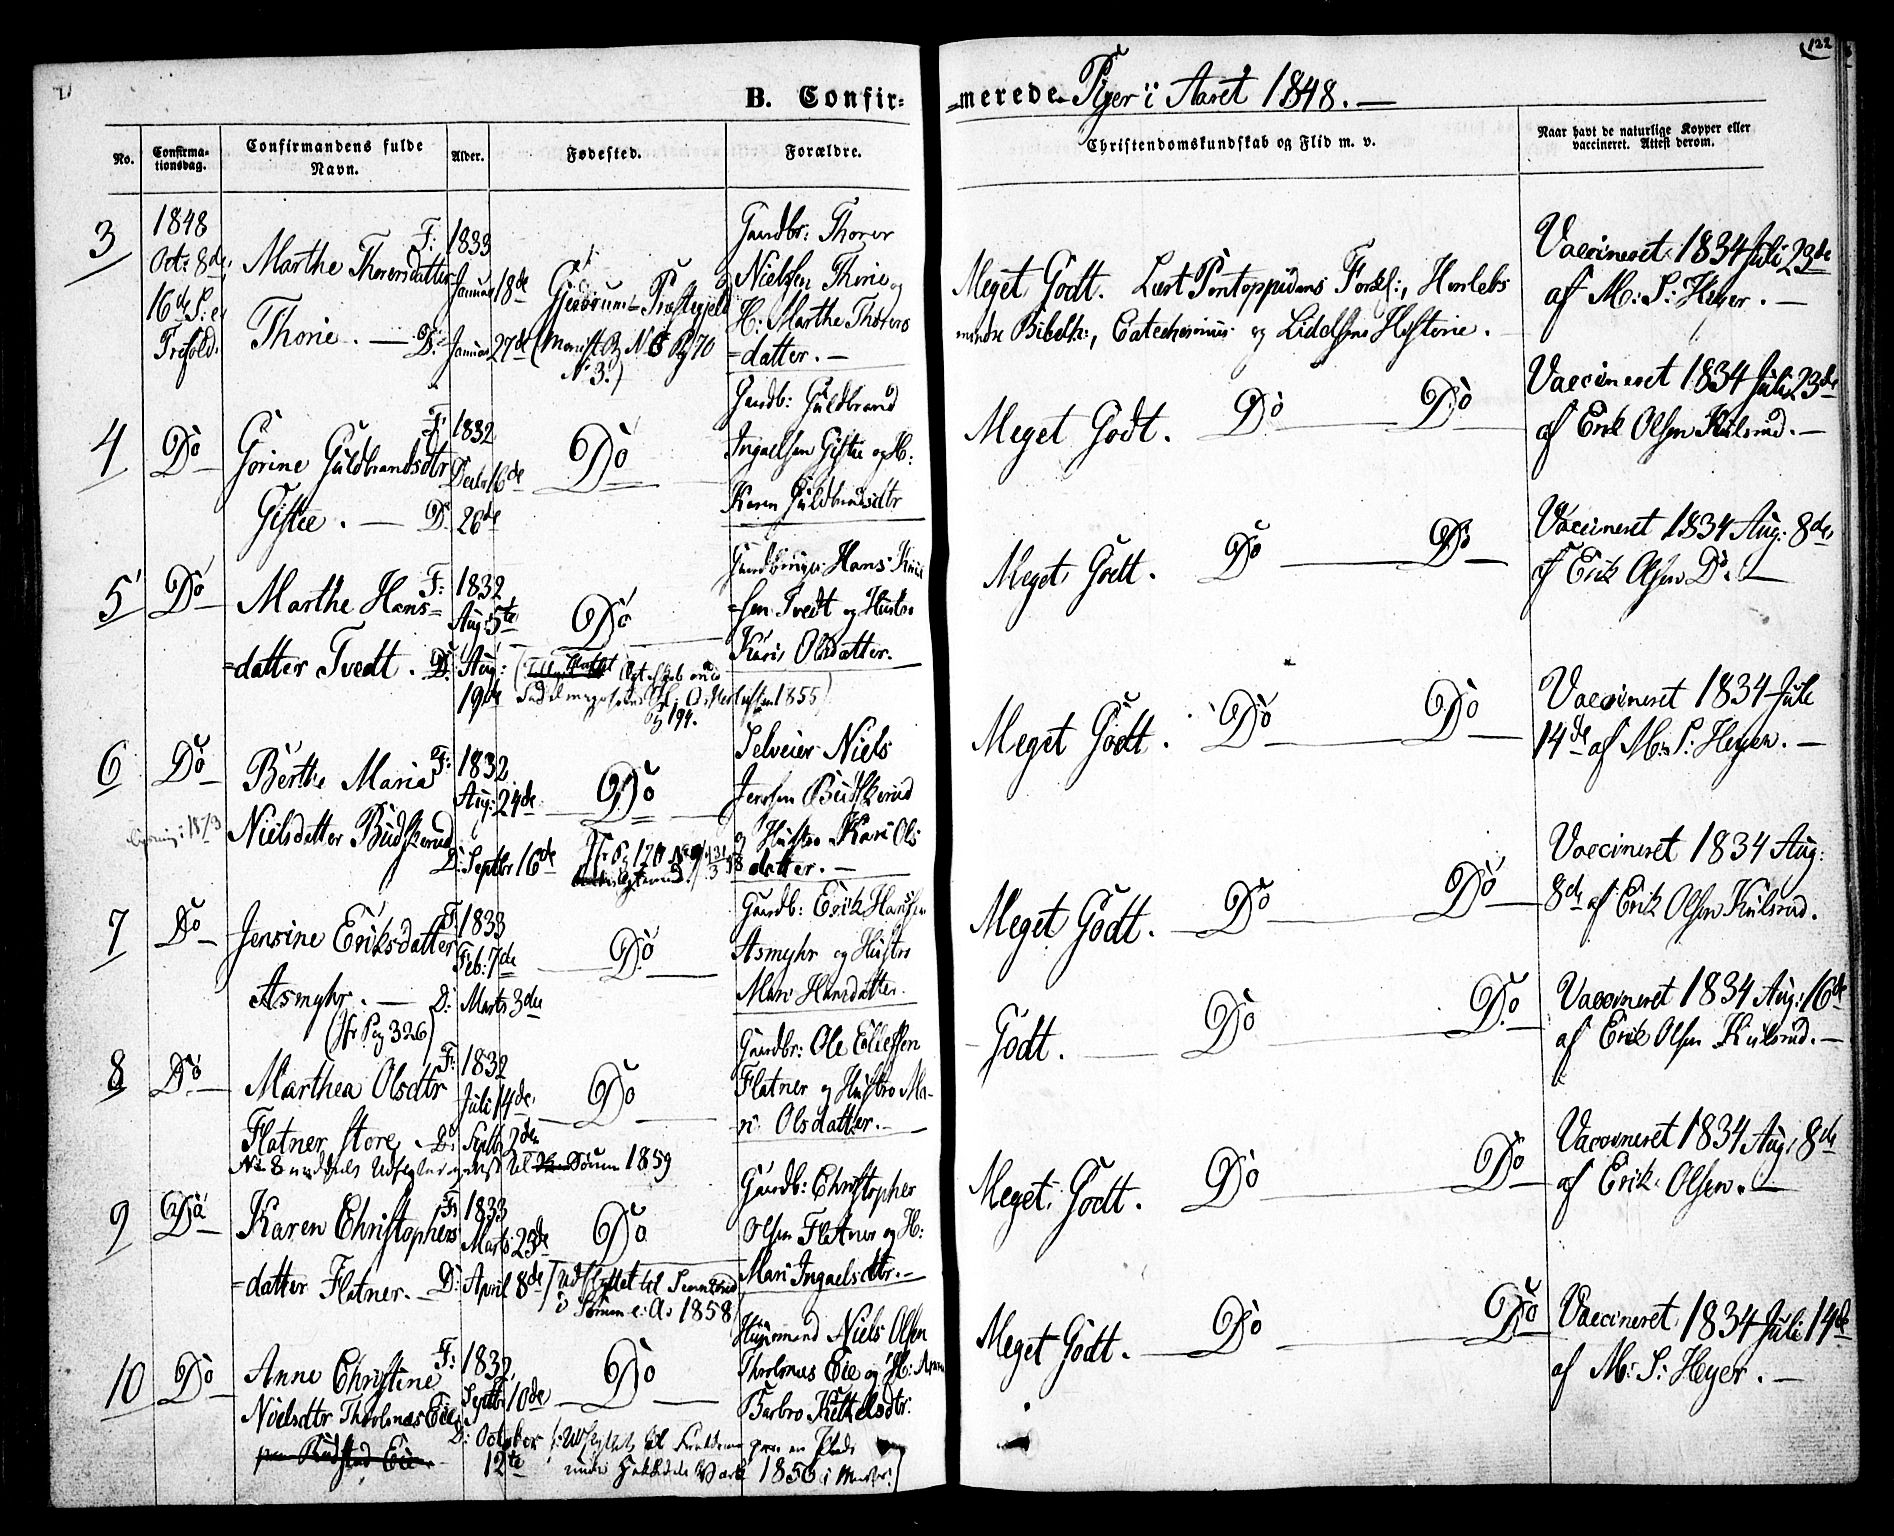 122
B. Confir-
-merede Piger i Aaret 1848. —
No.
Confirma-
tionsdag.
Confirmandens fulde
Navn.
Alder.
Fødested.
Forældre.
Christendomskundskab og Flid m. v.
Naar havt de naturlige Kopper eller
vaccineret. Attest derom.
3
1848
Oct: 8de
16de S: e:
Trefold:
Marthe Thorersdatter
Thorie. —
F: 1833
Januar 18de
D: Januar 27de
Gjerdrums Præstegjeld
No 3.)
Gaardbr: Thorer
Nielsen Thorie og
H: Marthe Thorers
=datter. —
Meget Godt. Læst Pontoppidans Forkl:, Herslebs
mindre Bibelh:, Catechismus og Historie.
Vaccineret 1834 Juli 23de
af M: S: Heyer. —
4
Do
Gorine Guldbrandsdtr
Gistie. —
F: 1832
Decbr 16de
D: 26de
Do
Gaardb: Guldbrand
Ingvelsen Gistie og H:
Karen Guldbrandsdtr
Meget Godt. Do Do
Vaccineret 1834 Juli 23de
af Erik Olsen Kulsrud. —
5
Do
Marthe Hans=
=datter Tvedt.
F: 1832
Aug: 5te
D: Aug:
19de
Do
1855)
Pg 194.
Gaardbruger Hans
=sen Tvedt og Hustro
Kari Olsdatter.
Meget Godt. Do Do
Vaccineret 1834 Aug: 8de
af Erik Olsen Do. —
6
Do
Berthe Maria
Nielsdatter Budskerud
F: 1832
Aug: 24de
D: Septbr 16de
Do
Selveier Niels
Jensen Budskerud
og Hustro Kari Ols
datter. —
Meget Godt. Do Do
Vaccineret 1834 Juli
14de af M: S: Heyer. —
7
Do
Jensine Eriksdatter
Asmyhr. —
(Jfr Pag 326)
F: 1833
Feb: 7de
D: Marts 3die
Do
Gaardb: Erik Hansen
Asmyhr og Hustro
Mari Hansdatter.
Meget Godt. Do Do
Vaccineret 1834 Aug:
8de af Erik Olsen Kulsrud.
8
Do
Marthea Olsdtr
Flatner store.
F: 1832
Juli 14de
D: Septbr 2den
Do
1859
Gaardbr: Ole Ellefsen
Flatner og Hustro Ma-
ri Olsdatter. —
Godt. Do Do
Vaccineret 1834 Aug: 16de
af Erik Olsen Kulsrud. —
9
Do
Karen Christophers
=datter Flatner. —
F: 1833
Marts 23de
D: April 8de
Do
(Udflyttet til
i Sørum i: A: 1858)
Gaardb: Christopher
Olsen Flatner og H:
Mari Ingvelsdtr. —
Meget Godt. Do Do
Vaccineret 1834 Aug: 8de
af Erik Olsen. —
10
Do
Anne Christine
Nielsdtr Eie
F: 1832
Septbr 10de
D: October
12te
Do
Huusmand Niels Olsen
Eie og H: Anne
Barbro Kettelsdtr.
Meget Godt. Do Do
Vaccineret 1834 Juli 14de
af M: S: Heyer. —